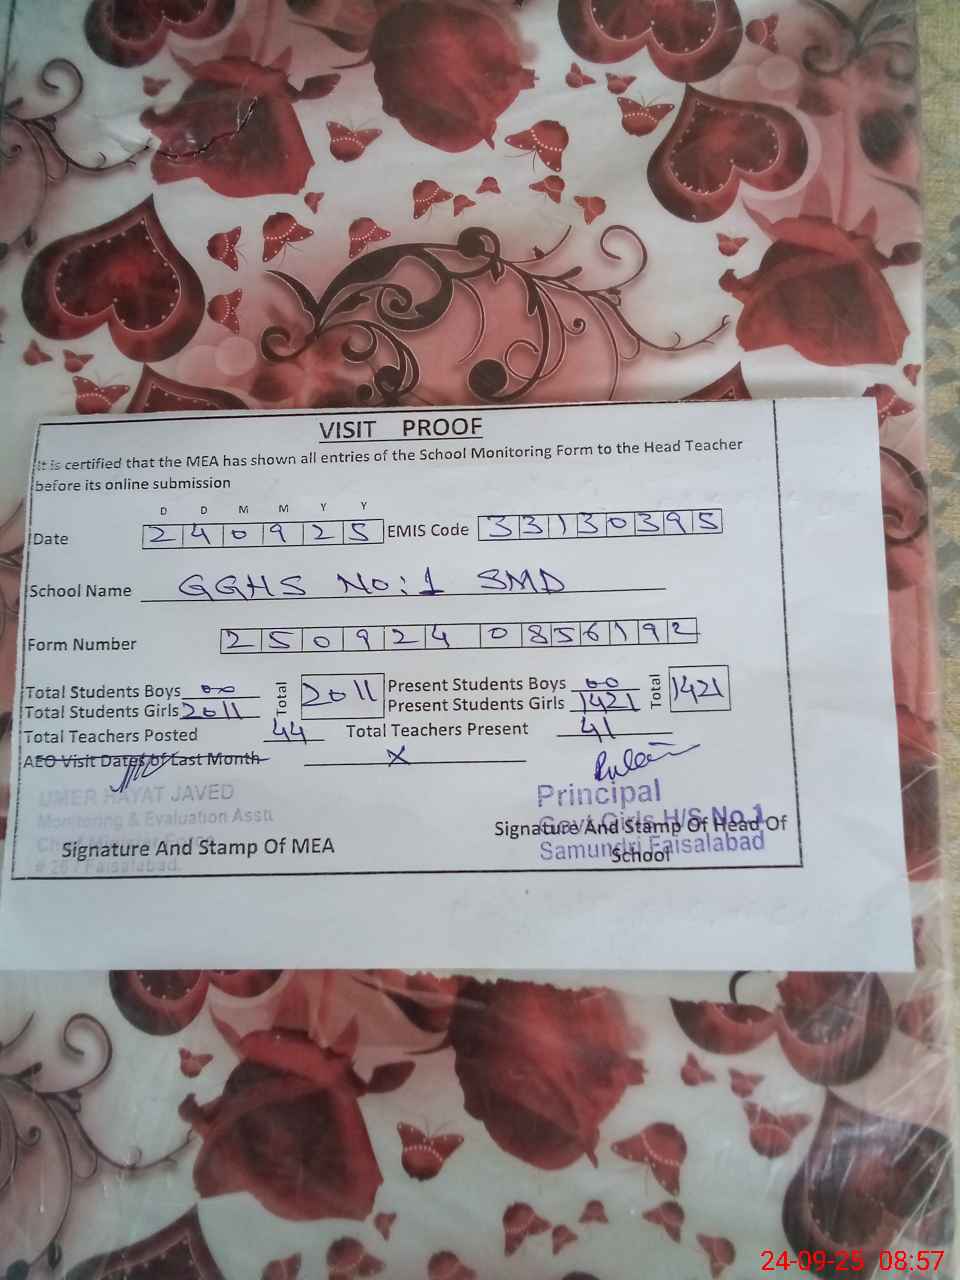 VISIT PROOF
It is certified that the MEA has shown all entries of the School Monitoring Form to the Head Teacher
before its online submission
D D M M Y Y
Date 2 4 0 9 2 5 EMIS Code 3 3 1 3 0 3 9 5
School Name GGHS No:1 SMD
Form Number 2 5 0 9 2 4 0 8 5 6 1 9 2
Total Students Boys 00 Total 2011 Present Students Boys 00 Total 1421
Total Students Girls 2011 Present Students Girls 1421
Total Teachers Posted 44 Total Teachers Present 41
AEO Visit Dates of Last Month X
UMER HAYAT JAVED
Monitoring & Evaluation Asstt
Signature And Stamp Of MEA
# 26 / Faisalabad.
Principal
Govt Girls H/S No.1
Signature And Stamp Of Head Of
Samundri Faisalabad
School
24-09-25 08:57